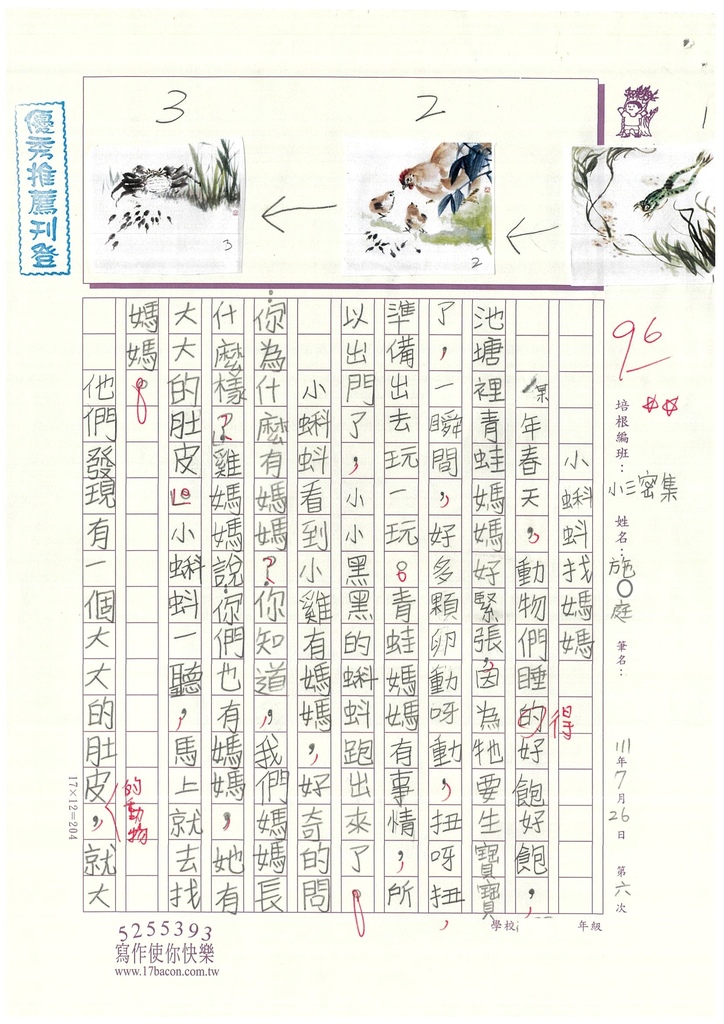 優秀推薦刊登
1
2
3
2
3
96
培根編班:小三密集
姓名:施○庭
筆名:
111年7月26日
第六次
學校
年級
小蝌蚪找媽媽
某年春天,動物們睡的好飽好飽,
得
池塘裡青蛙媽媽好緊張,因為牠要生寶寶
了,一瞬間,好多顆卵動呀動,扭呀扭,
準備出去玩一玩。青蛙媽媽有事情,所
以出門了,小小黑黑的蝌蚪跑出來了。
小蝌蚪看到小雞有媽媽,好奇的問:
你為什麼有媽媽?你知道,我們媽媽長
什麼樣?雞媽媽說:你們也有媽媽,她有
大大的肚皮。小蝌蚪一聽,馬上就去找
媽媽。
他們發現有一個大大的肚皮,就大
的動物
17×12=204
5255393
寫作使你快樂
www.17bacon.com.tw